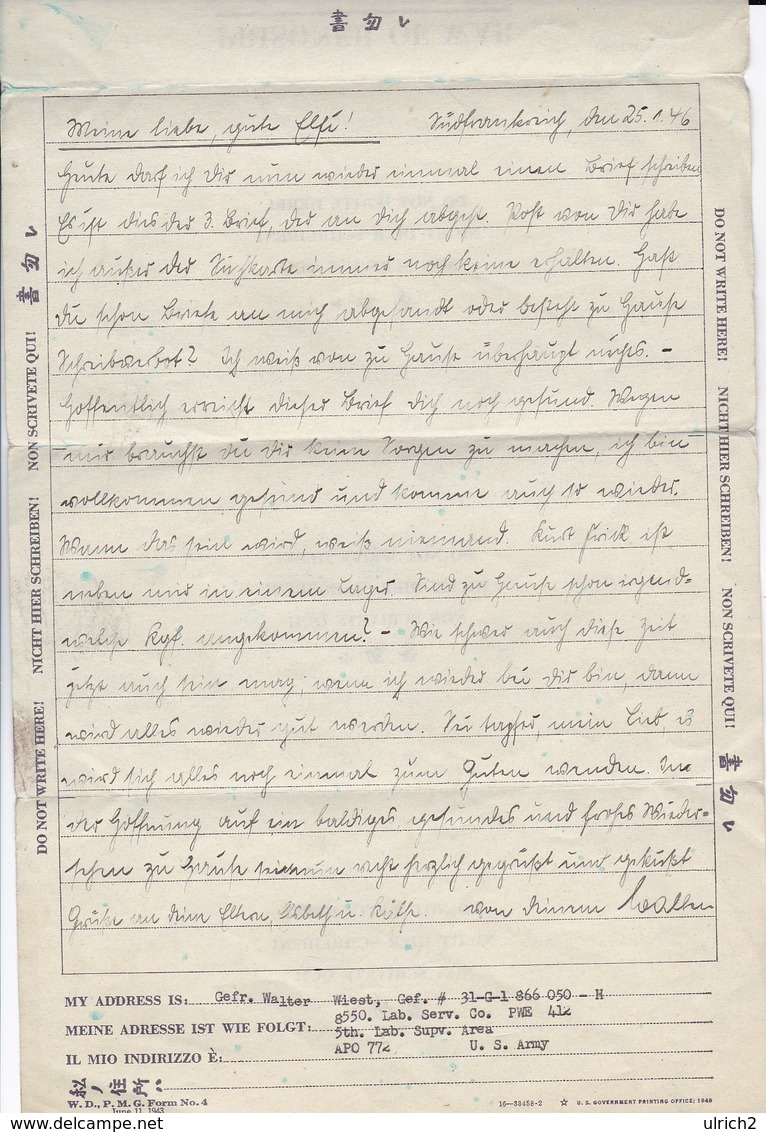 書勿ㇾ
Meine liebe, gute Elfi! Südfrankreich, den 25.1.46
Heute darf ich Dir nun wieder einmal einen Brief schreiben
Es ist dies der 3. Brief, der an Dich abgeht. Post von Dir habe
ich außer der Suchkarte immer noch keine erhalten. Hast
Du schon Briefe an mich abgesandt oder besteht zu Hause
Schreibverbot? Ich weiß von zu Hause überhaupt nichts. –
Hoffentlich erreicht dieser Brief Dich noch gesund. Wegen
mir brauchst du Dir keine Sorgen zu machen, ich bin
vollkommen gesund und komme auch so wieder.
Wann das sein wird, weiß niemand. Kurt Frick ist
neben mir in einem Lager. Sind zu Hause schon irgend=
welche Kgf. angekommen? – Wie schwer auch diese Zeit
jetzt auch sein mag, wenn ich wieder bei Dir bin, dann
wird alles wieder gut werden. Sei tapfer, mein Lieb, es
wird sich alles noch einmal zum Guten wenden. In
der Hoffnung auf ein baldiges gesundes und frohes Wieder-
sehen zu Hause sei nun recht herzlich gegrüßt und geküßt
Grüße an deine Eltern, u. von deinem Walter
DO NOT WRITE HERE! NICHT HIER SCHREIBEN! NON SCRIVETE QUI! 書勿ㇾ
DO NOT WRITE HERE! NICHT HIER SCHREIBEN! NON SCRIVETE QUI! 書勿ㇾ
MY ADDRESS IS: Gefr. Walter Wiest, Gef. # 31-G-1 866 050 - H
8550. Lab. Serv. Co. PWE 412
MEINE ADRESSE IST WIE FOLGT: 5th. Lab. Supv. Area
APO 772 U. S. Army
IL MIO INDIRIZZO È:
私ノ住所ハ
W. D., P. M. G. Form No. 4
June 11, 1943
16—33458-2 ☆ U. S. GOVERNMENT PRINTING OFFICE: 1943
ulrich2